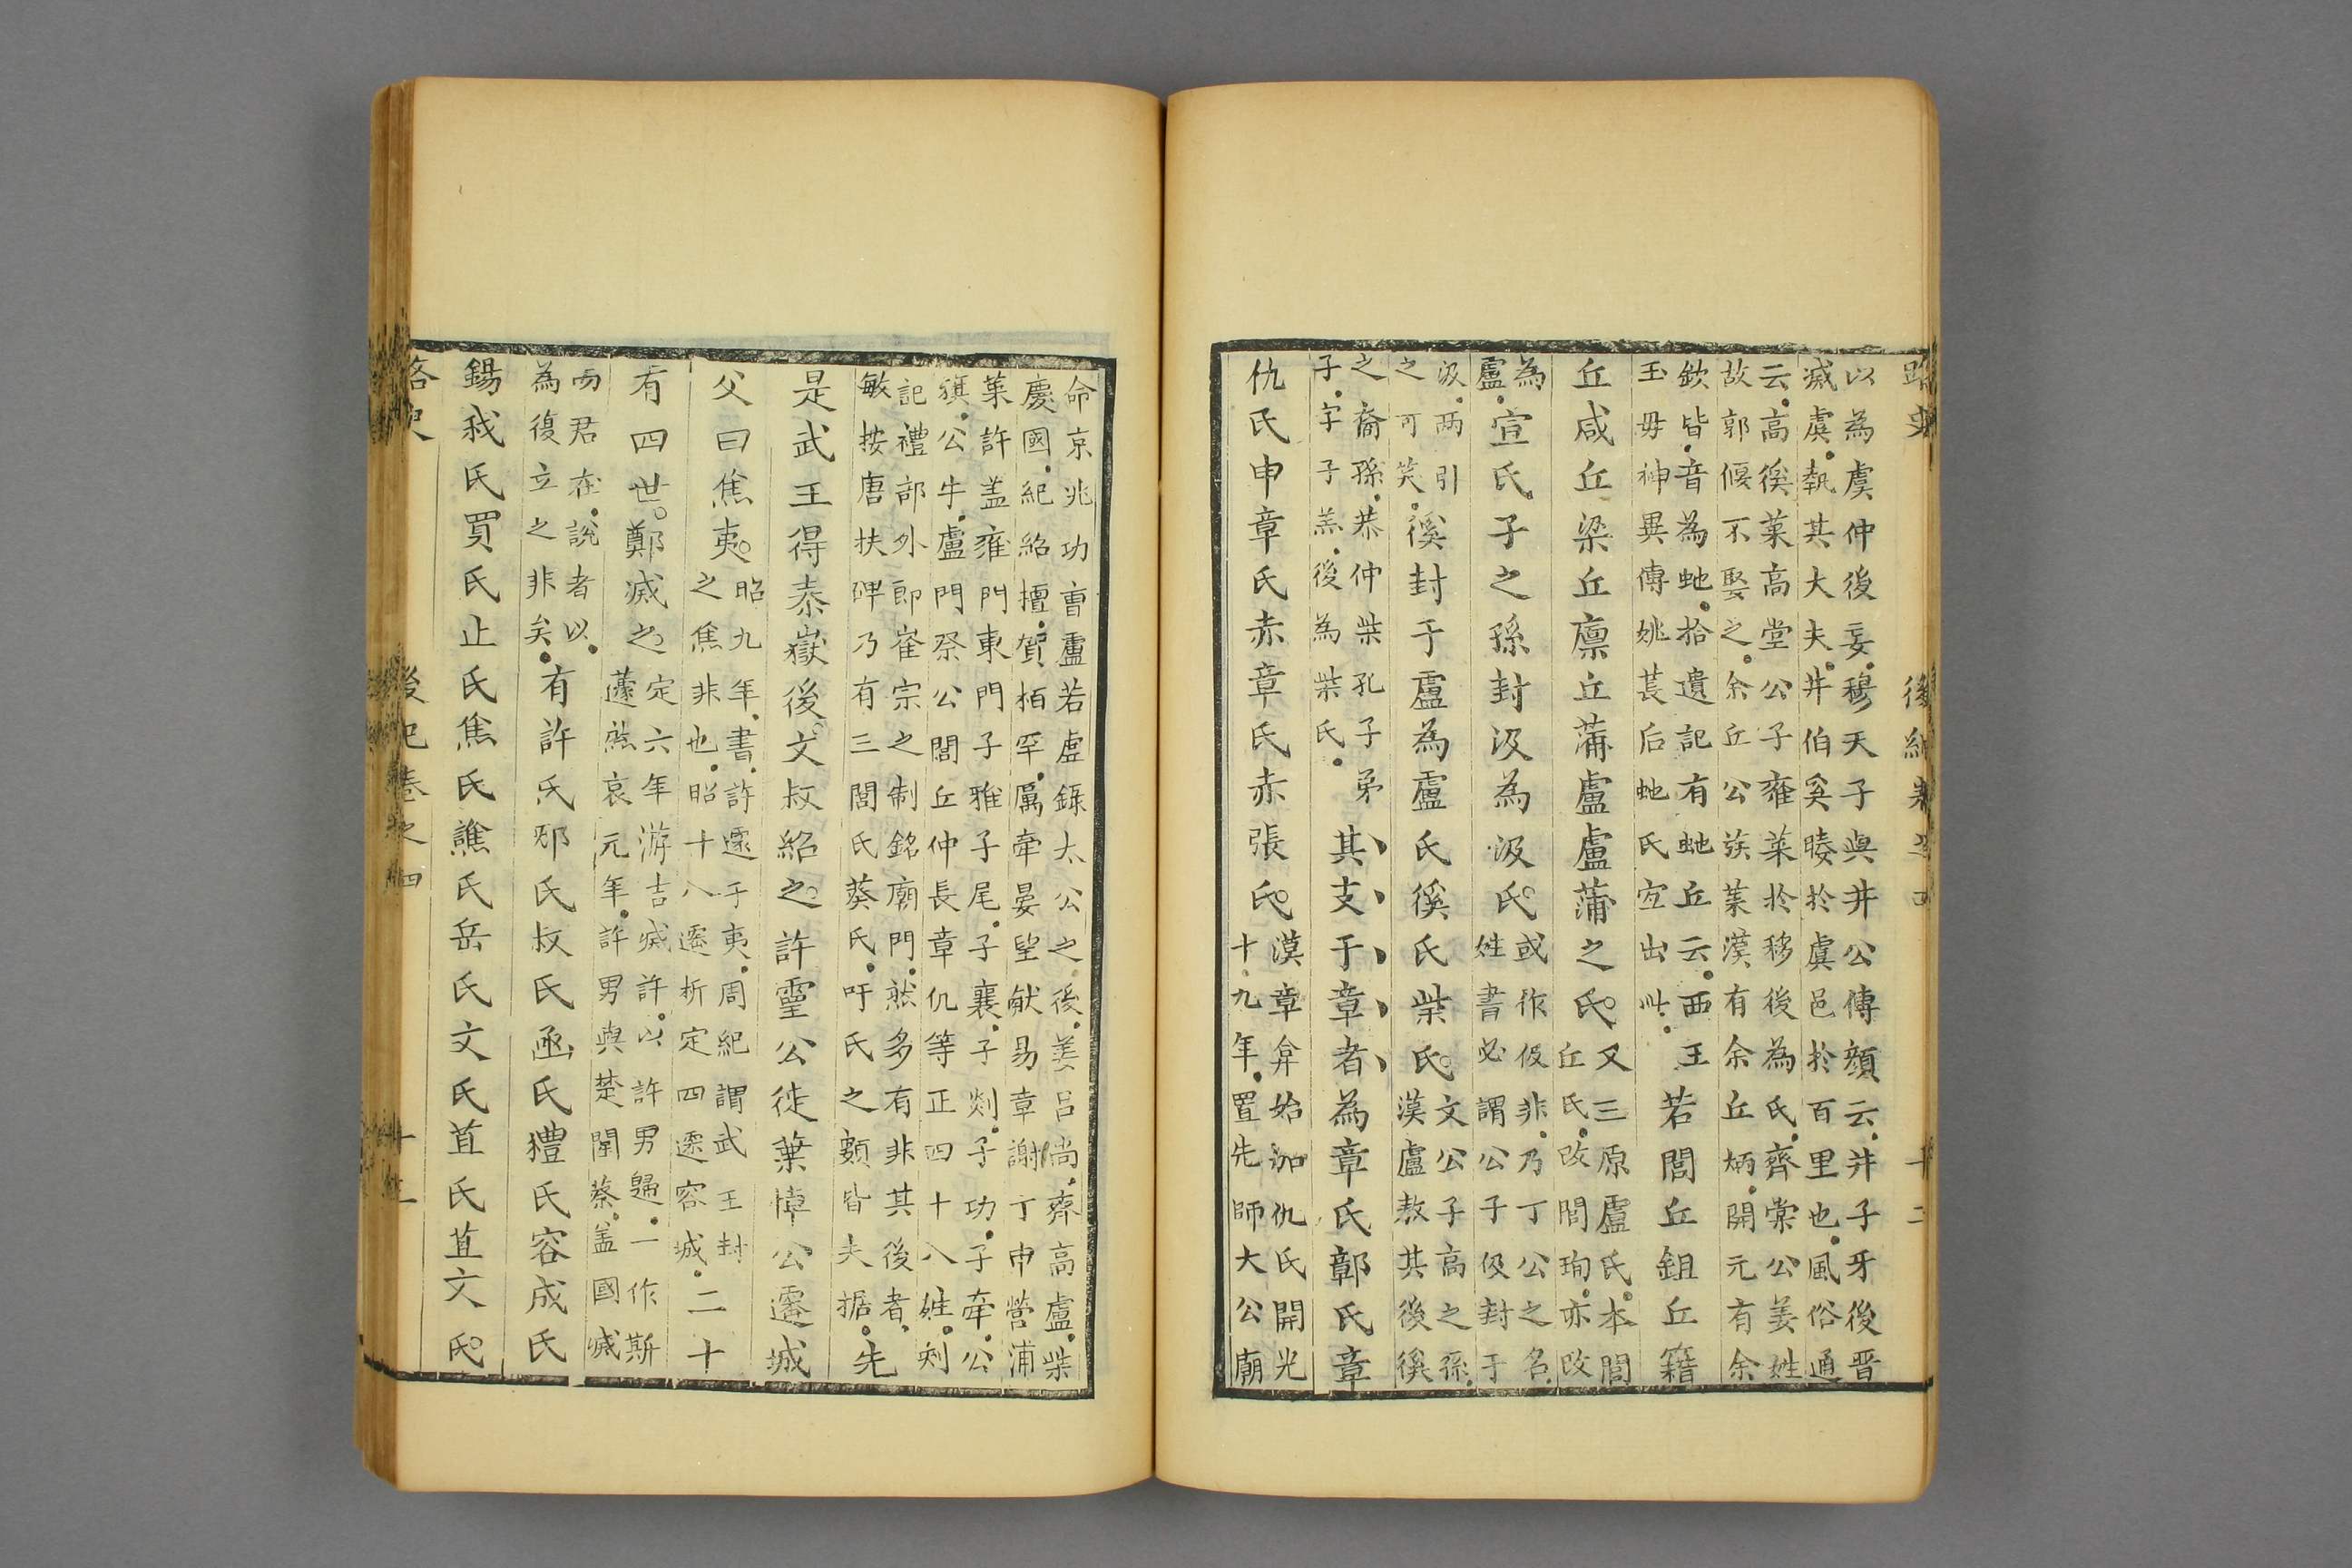 路史
後紀卷之四
十二
以為虞仲後妄穆天子與井公傳顔云井子牙後晋
滅虞執其大夫井伯奚賸於虞邑於百里也風俗通
云高徯菜高堂公子雍菜於移後為氏齊棠公姜姓
故郭偃不娶之余丘公族葉漢有余丘炳開元有余
欽皆音為虵拾遺記有虵丘云西王
玉毋神異傳姚萇后虵氏宜出此
若閭丘鉏丘籍
丘咸丘梁丘廪丘蒲盧盧蒲之氏
又三原盧氏本閭
丘氏改閭珣亦改
為
盧
宣氏子之孫封汲為汲氏
或作伋非乃丁公之名
姓書必謂公子伋封于
汲两引
之可笑
徯封于盧為盧氏徯氏柴氏
文公子高之孫
漢盧敖其後徯
之裔孫恭仲柴孔子弟
子字子羔後為柴氏
其支于章者為章氏鄣氏章
仇氏申章氏赤章氏赤張氏
漢章弇始加仇氏開光
十九年置先師大公廟
命京兆功曹盧若虚録太公之後姜吕尚齊高盧柴
慶國紀紹檀賀栢罕厲牽晏望献易章謝丁申營浦
菜許盖雍門東門子雅子尾子襄子剡子功子牽公
旗公牛盧門祭公閭丘仲長章仇等正四十八姓刻
記禮部外郎崔宗之制銘廟門然多有非其後者
敏按唐扶碑乃有三閭氏葵氏吁氏之類皆夫据
先
是武王得泰嶽後文叔紹之許靈公徙葉悼公遷城
父曰焦夷
昭九年書許遷于夷周紀謂武王封
之焦非也昭十八遷析定四遷容城
二十
有四世鄭滅之
定六年游吉滅許以許男歸一作斯
蘧然哀元年許男與楚閏蔡盖國滅
而君在說者以
為復立之非矣
有許氏邪氏叔氏函氏禮氏容成氏
錫我氏買氏止氏焦氏譙氏岳氏文氏苴氏苴文氏
路史
後紀卷之四
十三